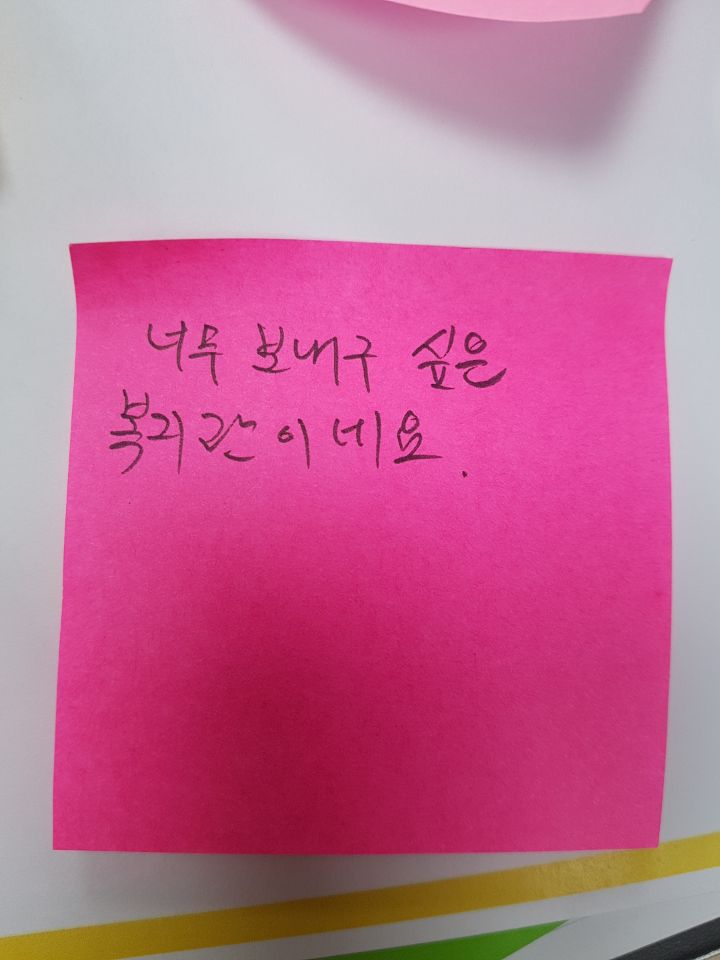 너무 보내구 싶은
복지관이네요.